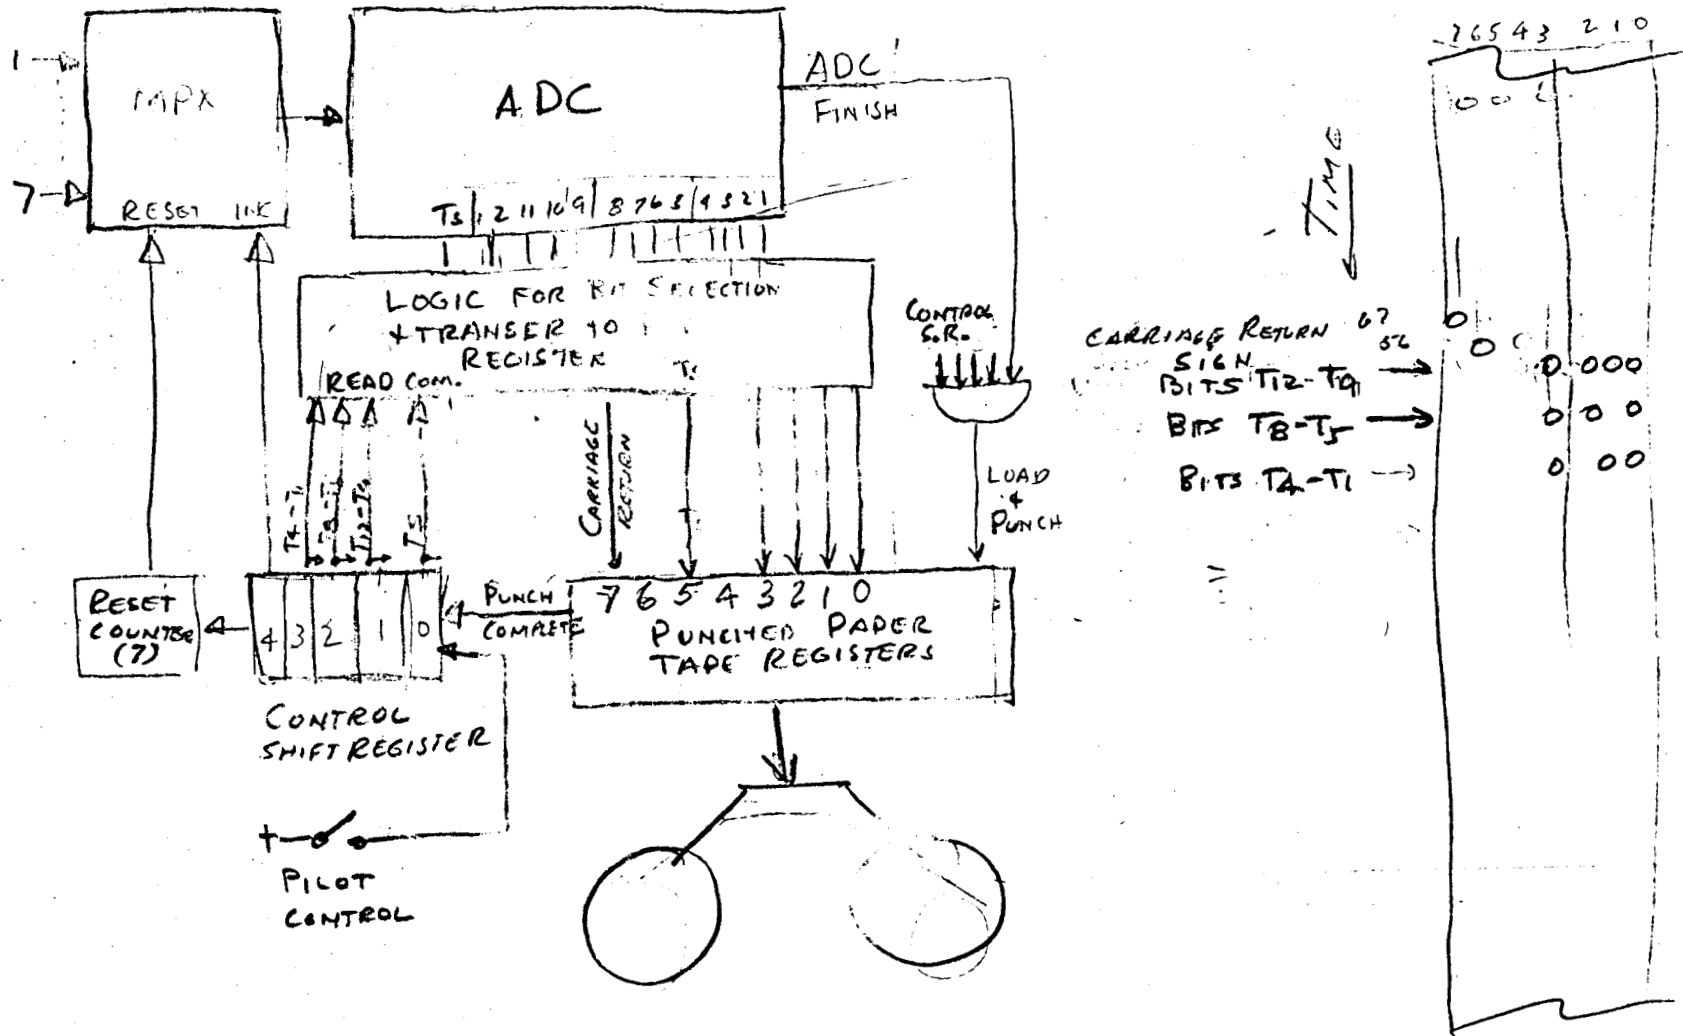 1
7
MPX
RESET INK
ADC
ADC
FINISH
TS 12 11 10 9 8 7 6 5 4 3 2 1
LOGIC FOR BIT SELECTION
& TRANSER TO
REGISTER
READ COM.
CONTROL
S.R.
T4-T1
T12-T9
TS
CARRIAGE
RETURN
LOAD
&
PUNCH
RESET
COUNTER
(7)
4 3 2 1 0
PUNCH
COMPLETE
7 6 5 4 3 2 1 0
PUNCHED PAPER
TAPE REGISTERS
CONTROL
SHIFT REGISTER
+
PILOT
CONTROL
7 6 5 4 3 2 1 0
TIME
CARRIAGE RETURN
SIGN
BITS T12-T9
BITS T8-T5
BITS T4-T1